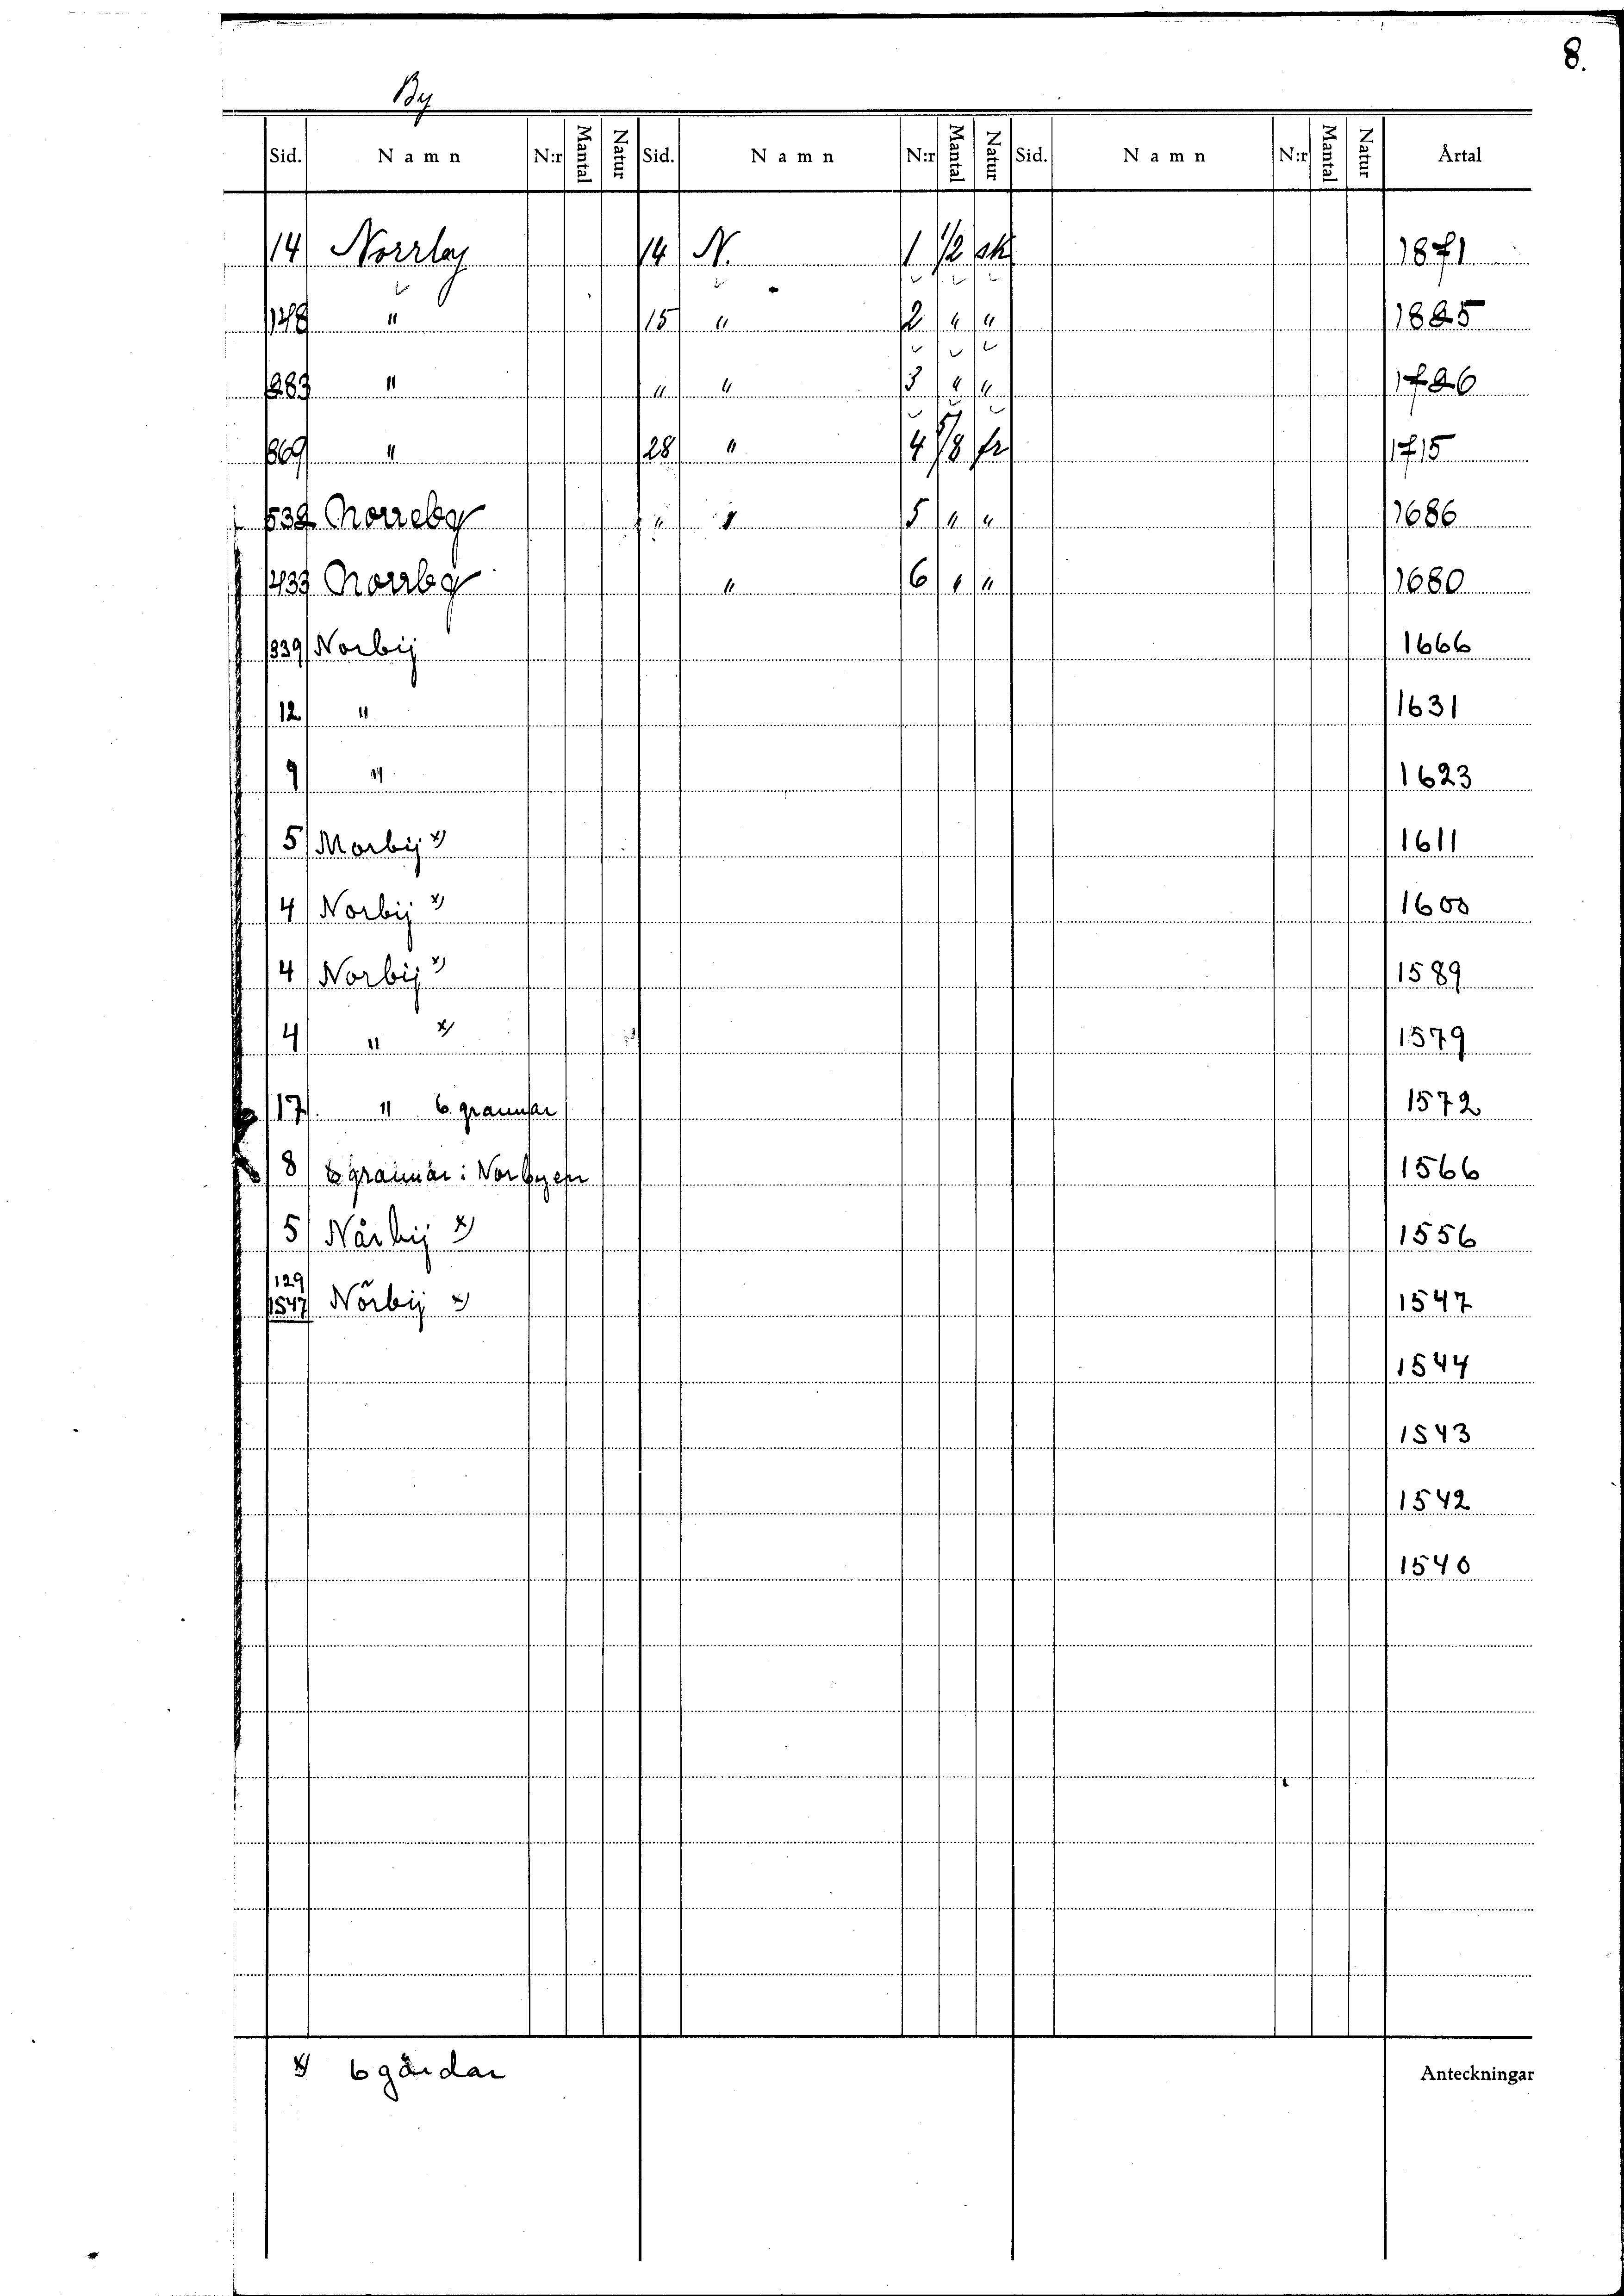 8.
By
Sid. Namn N:r Mantal Natur Sid. Namn N:r Mantal Natur Sid. Namn N:r Mantal Natur Årtal
14 Norrby 14 N. 1 1/2 sk 1871
148 " 15 " 2 " " 1825
283 " " " 3 " " 1726
869 " 28 " 4 5/8 fr 1715
532 Norreby " " 5 " " 1686
433 Norrby " 6 " " 1680
339 Norbij 1666
12 " 1631
9 " 1623
5 Morbij x) 1611
4 Norbij x) 1600
4 Norbij x) 1589
4 " x) 1579
17 " 6 grannar 1572
8 6 grannar: Norbyen 1566
5 Nårbij x) 1556
129
1547 Nõrbij x) 1547
1544
1543
1542
1540
x) 6 gårdar Anteckningar